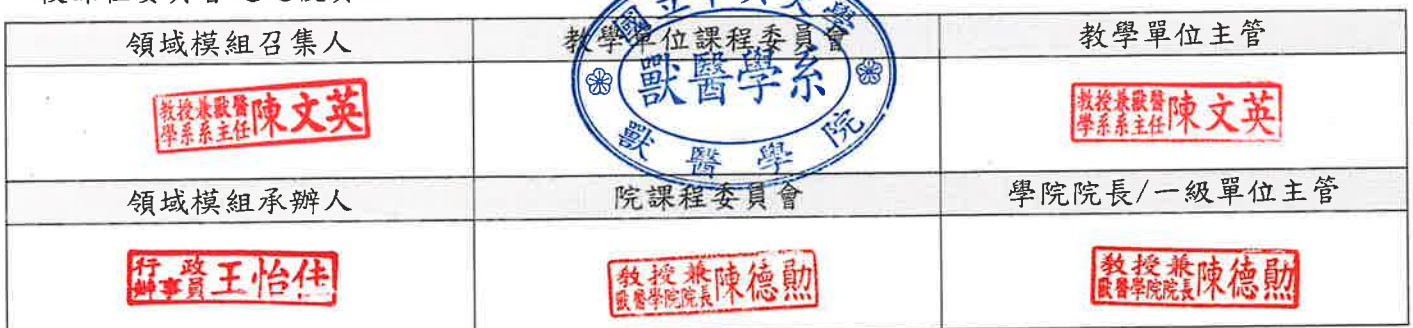 領域模組召集人
教學單位課程委員會
教學單位主管
教授兼獸醫學系系主任陳文英
獸醫學系
獸醫學院
教授兼獸醫學系系主任陳文英
領域模組承辦人
院課程委員會
學院院長/一級單位主管
行政辦事員王怡佳
教授兼獸醫學院院長陳德勛
教授兼獸醫學院院長陳德勛